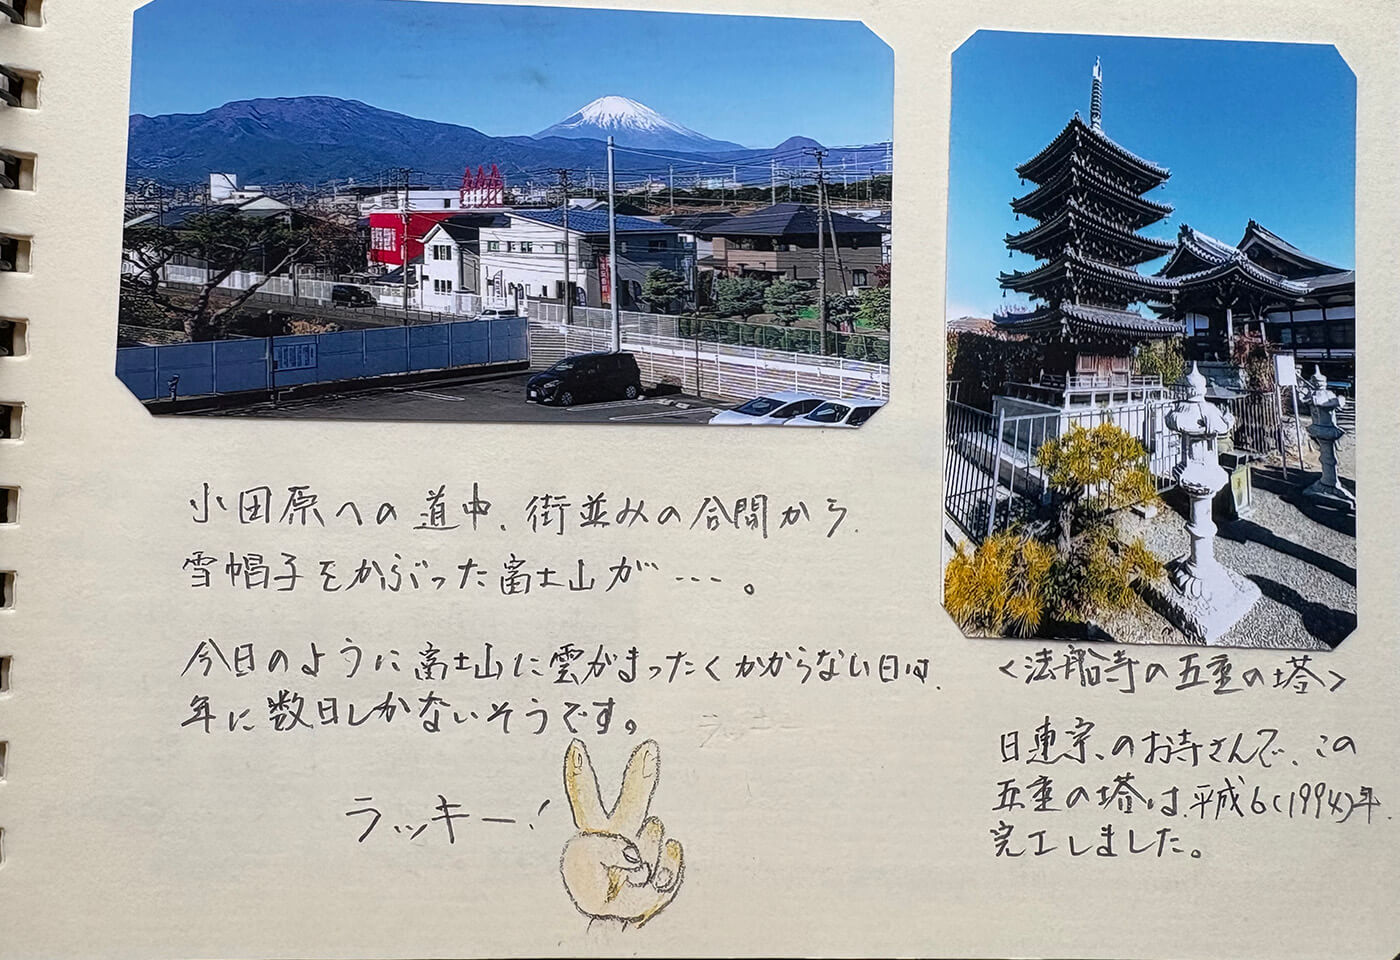 小田原への道中、街並みの合間から、
雪帽子をかぶった富士山が……。
今日のように富士山に雲がまったくかからない日は、
年に数日しかないそうです。
ラッキー!
<法船寺の五重の塔>
日蓮宗、のお寺さんで、この
五重の塔は、平成6(1994)年、
完工しました。